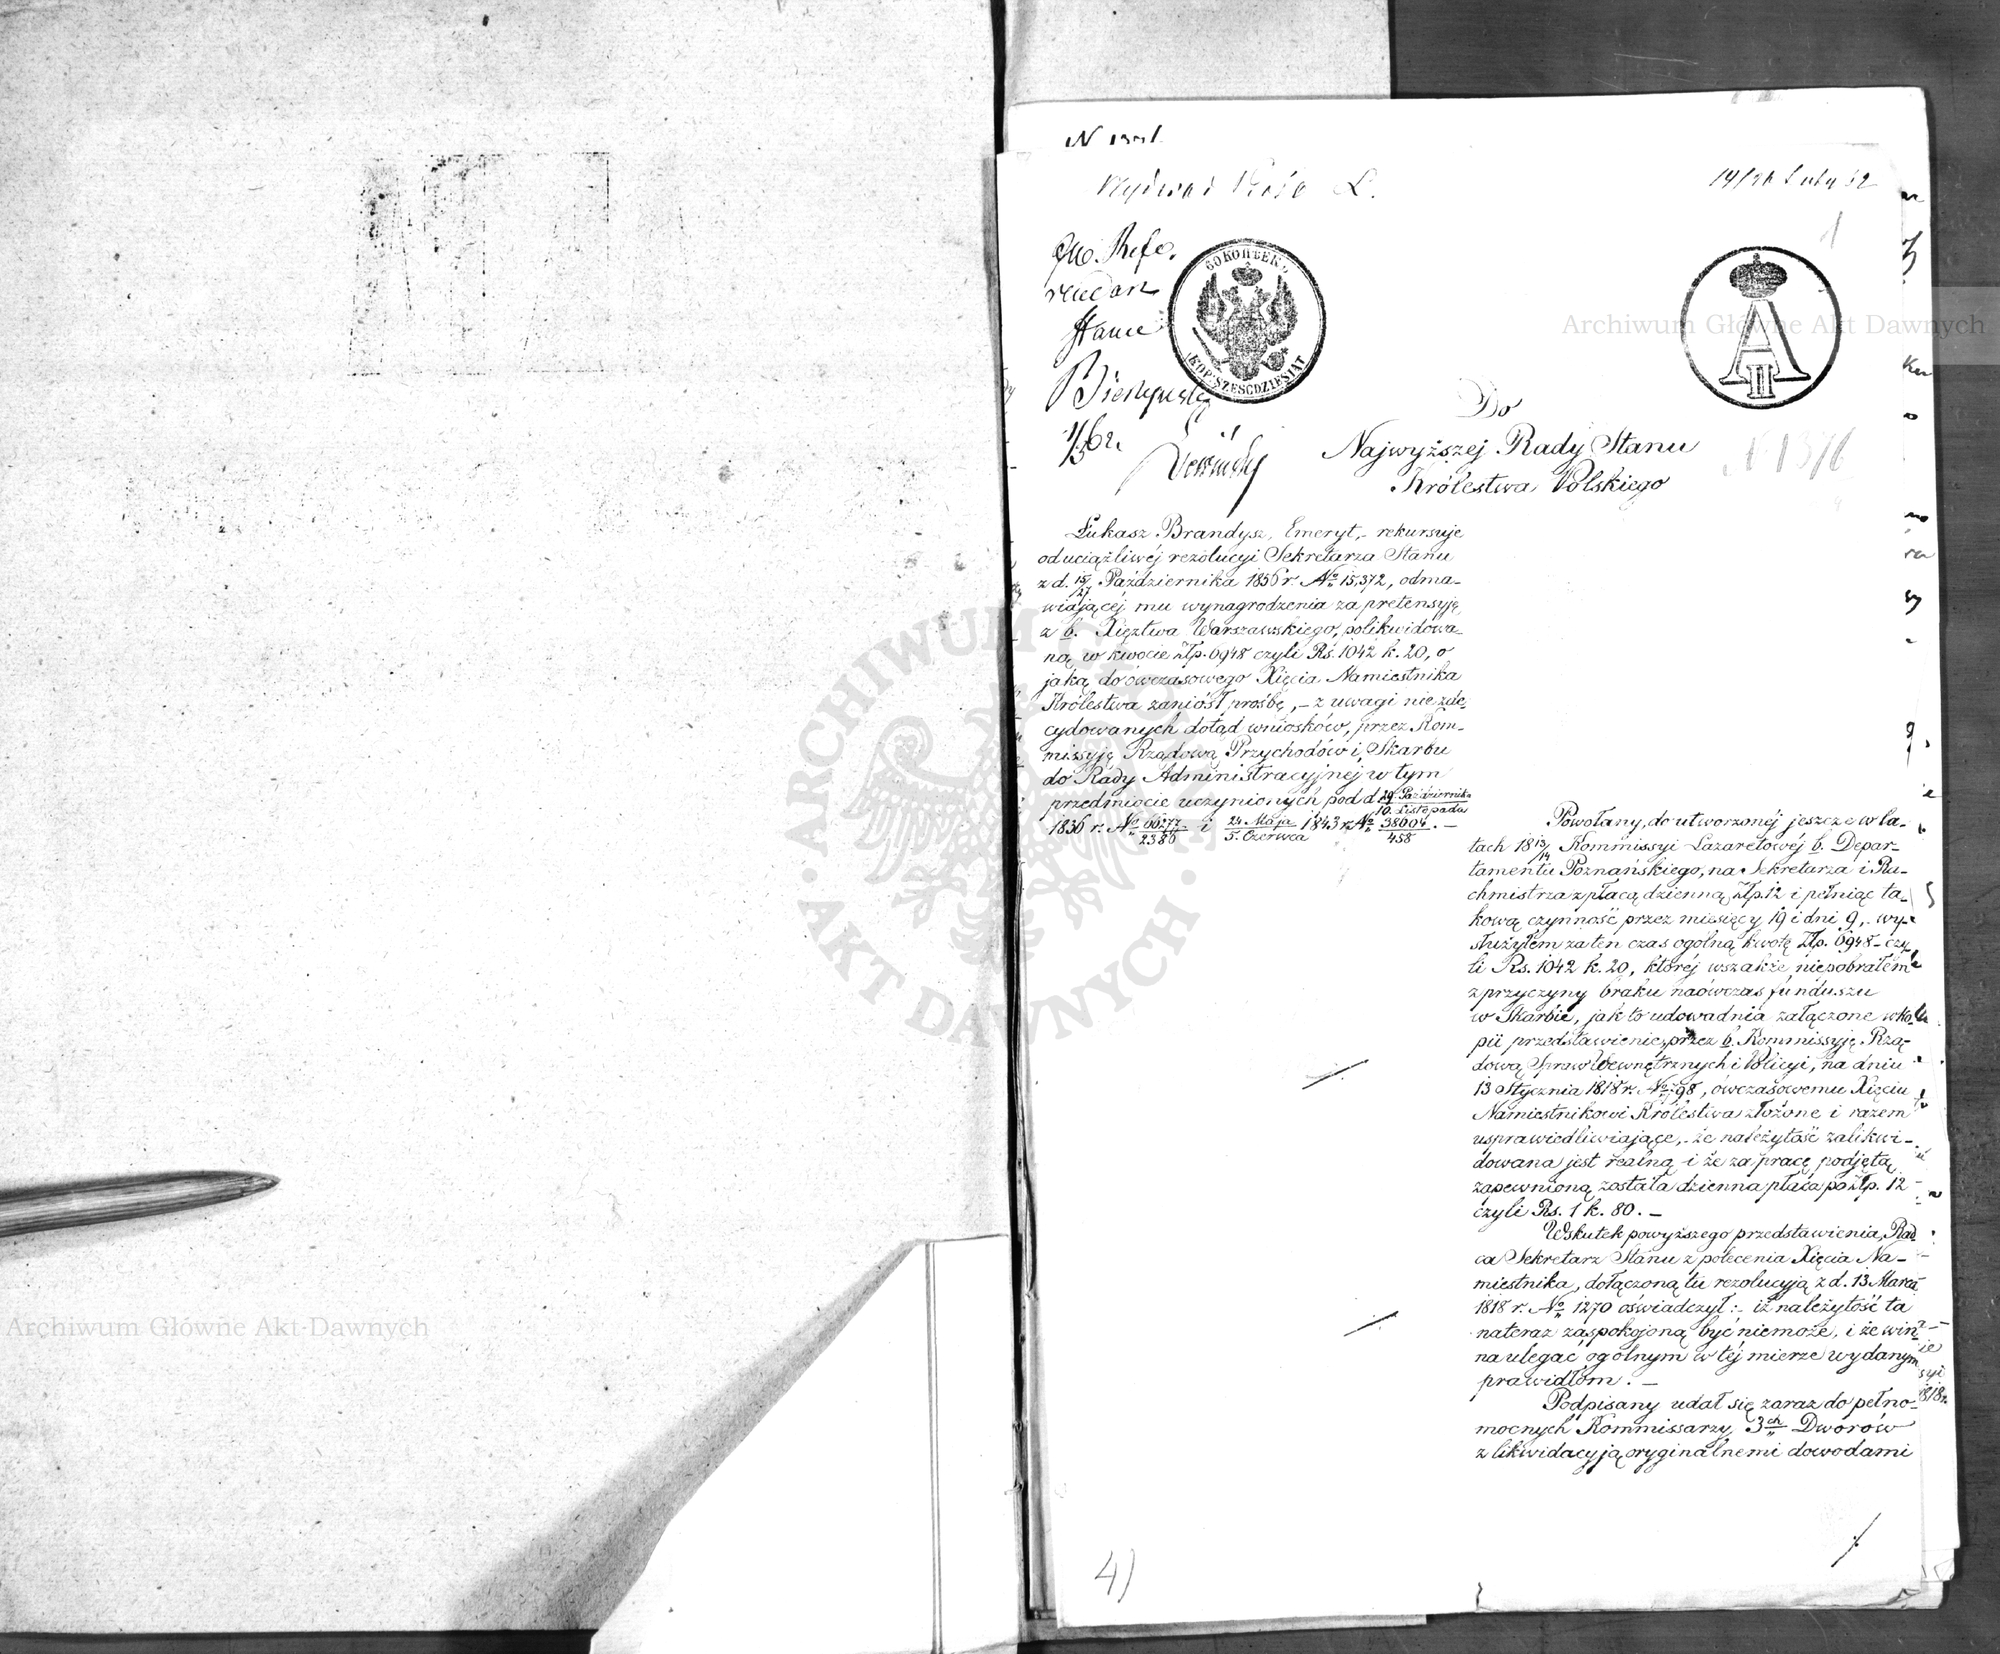 Do
Najwyższej Rady Stanu
Królestwa Polskiego
N 1376
60 КОПѢЕКЪ
KOP: SZEŚĆDZIESIĄT
A II
Łukasz Brandysz, Emeryt, - rekursuje
od uciążliwéj rezolucyi Sekretarza Stanu
z d. 15/27 Października 1836 r. No 15,372, odma-
wiającéj mu wynagrodzenia za pretensyję
z b. Xięztwa Warszawskiego, polikwidowa-
ną w kwocie Złp. 6948 czyli Rs. 1042 k. 20, o
jaką do ówczasowego Xięcia Namiestnika
Królestwa zaniósł prośbę, - z uwagi niezde-
cydowanych dotąd wniosków, przez Kom-
missyję Rządową Przychodów i Skarbu
do Rady Administracyjnéj w tym
przedmiocie uczynionych pod d. 29 Października/10 Listopada
1836 r. No 66277/2386 i 24 Maja/5 Czerwca 1843 r. No 38604/458. -
Powołany, do utworzonéj jeszcze w la-
tach 1813/14 Kommissyi Lazaretowéj b. Depar-
tamentu Poznańskiego, na Sekretarza i Ra-
chmistrza z płacą dzienną Złp. 12 i pełniąc ta-
kową czynność przez miesięcy 19 i dni 9, - wy-
służyłem za ten czas ogólną kwotę Złp. 6948 - czy-
li Rs. 1042 k. 20, któréj wszakże niepobrałem
z przyczyny braku naówczas funduszu
w Skarbie, jak to udowadnia załączone w ko-
pii przedstawienie, przez b. Kommissyję Rzą-
dową Spraw Wewnętrznych i Policyi, na dniu
13 Stycznia 1818 r. No 798, ówczasowemu Xięciu
Namiestnikowi Królestwa złożone i razem
usprawiedliwiające, - że należytość zalikwi-
dowana jest realną i że za pracę podjętą
zapewnioną została dzienna płaca po Złp. 12
czyli Rs. 1 k. 80. -
Wskutek powyższego przedstawienia, Rad-
ca Sekretarz Stanu z polecenia Xięcia Na-
miestnika, dołączoną tu rezolucyją z d. 13 Marca
1818 r. No 1270 oświadczył: - iż należytość ta
nateraz zaspokojoną być niemoże, i że win-
na ulegać ogólnym w téj mierze wydanym
prawidłom. -
Podpisany udał się zaraz do pełno-
mocnych Kommissarzy 3ch Dworów
z likwidacyją oryginalnemi dowodami
4)
Archiwum Główne Akt Dawnych
Archiwum Główne Akt Dawnych